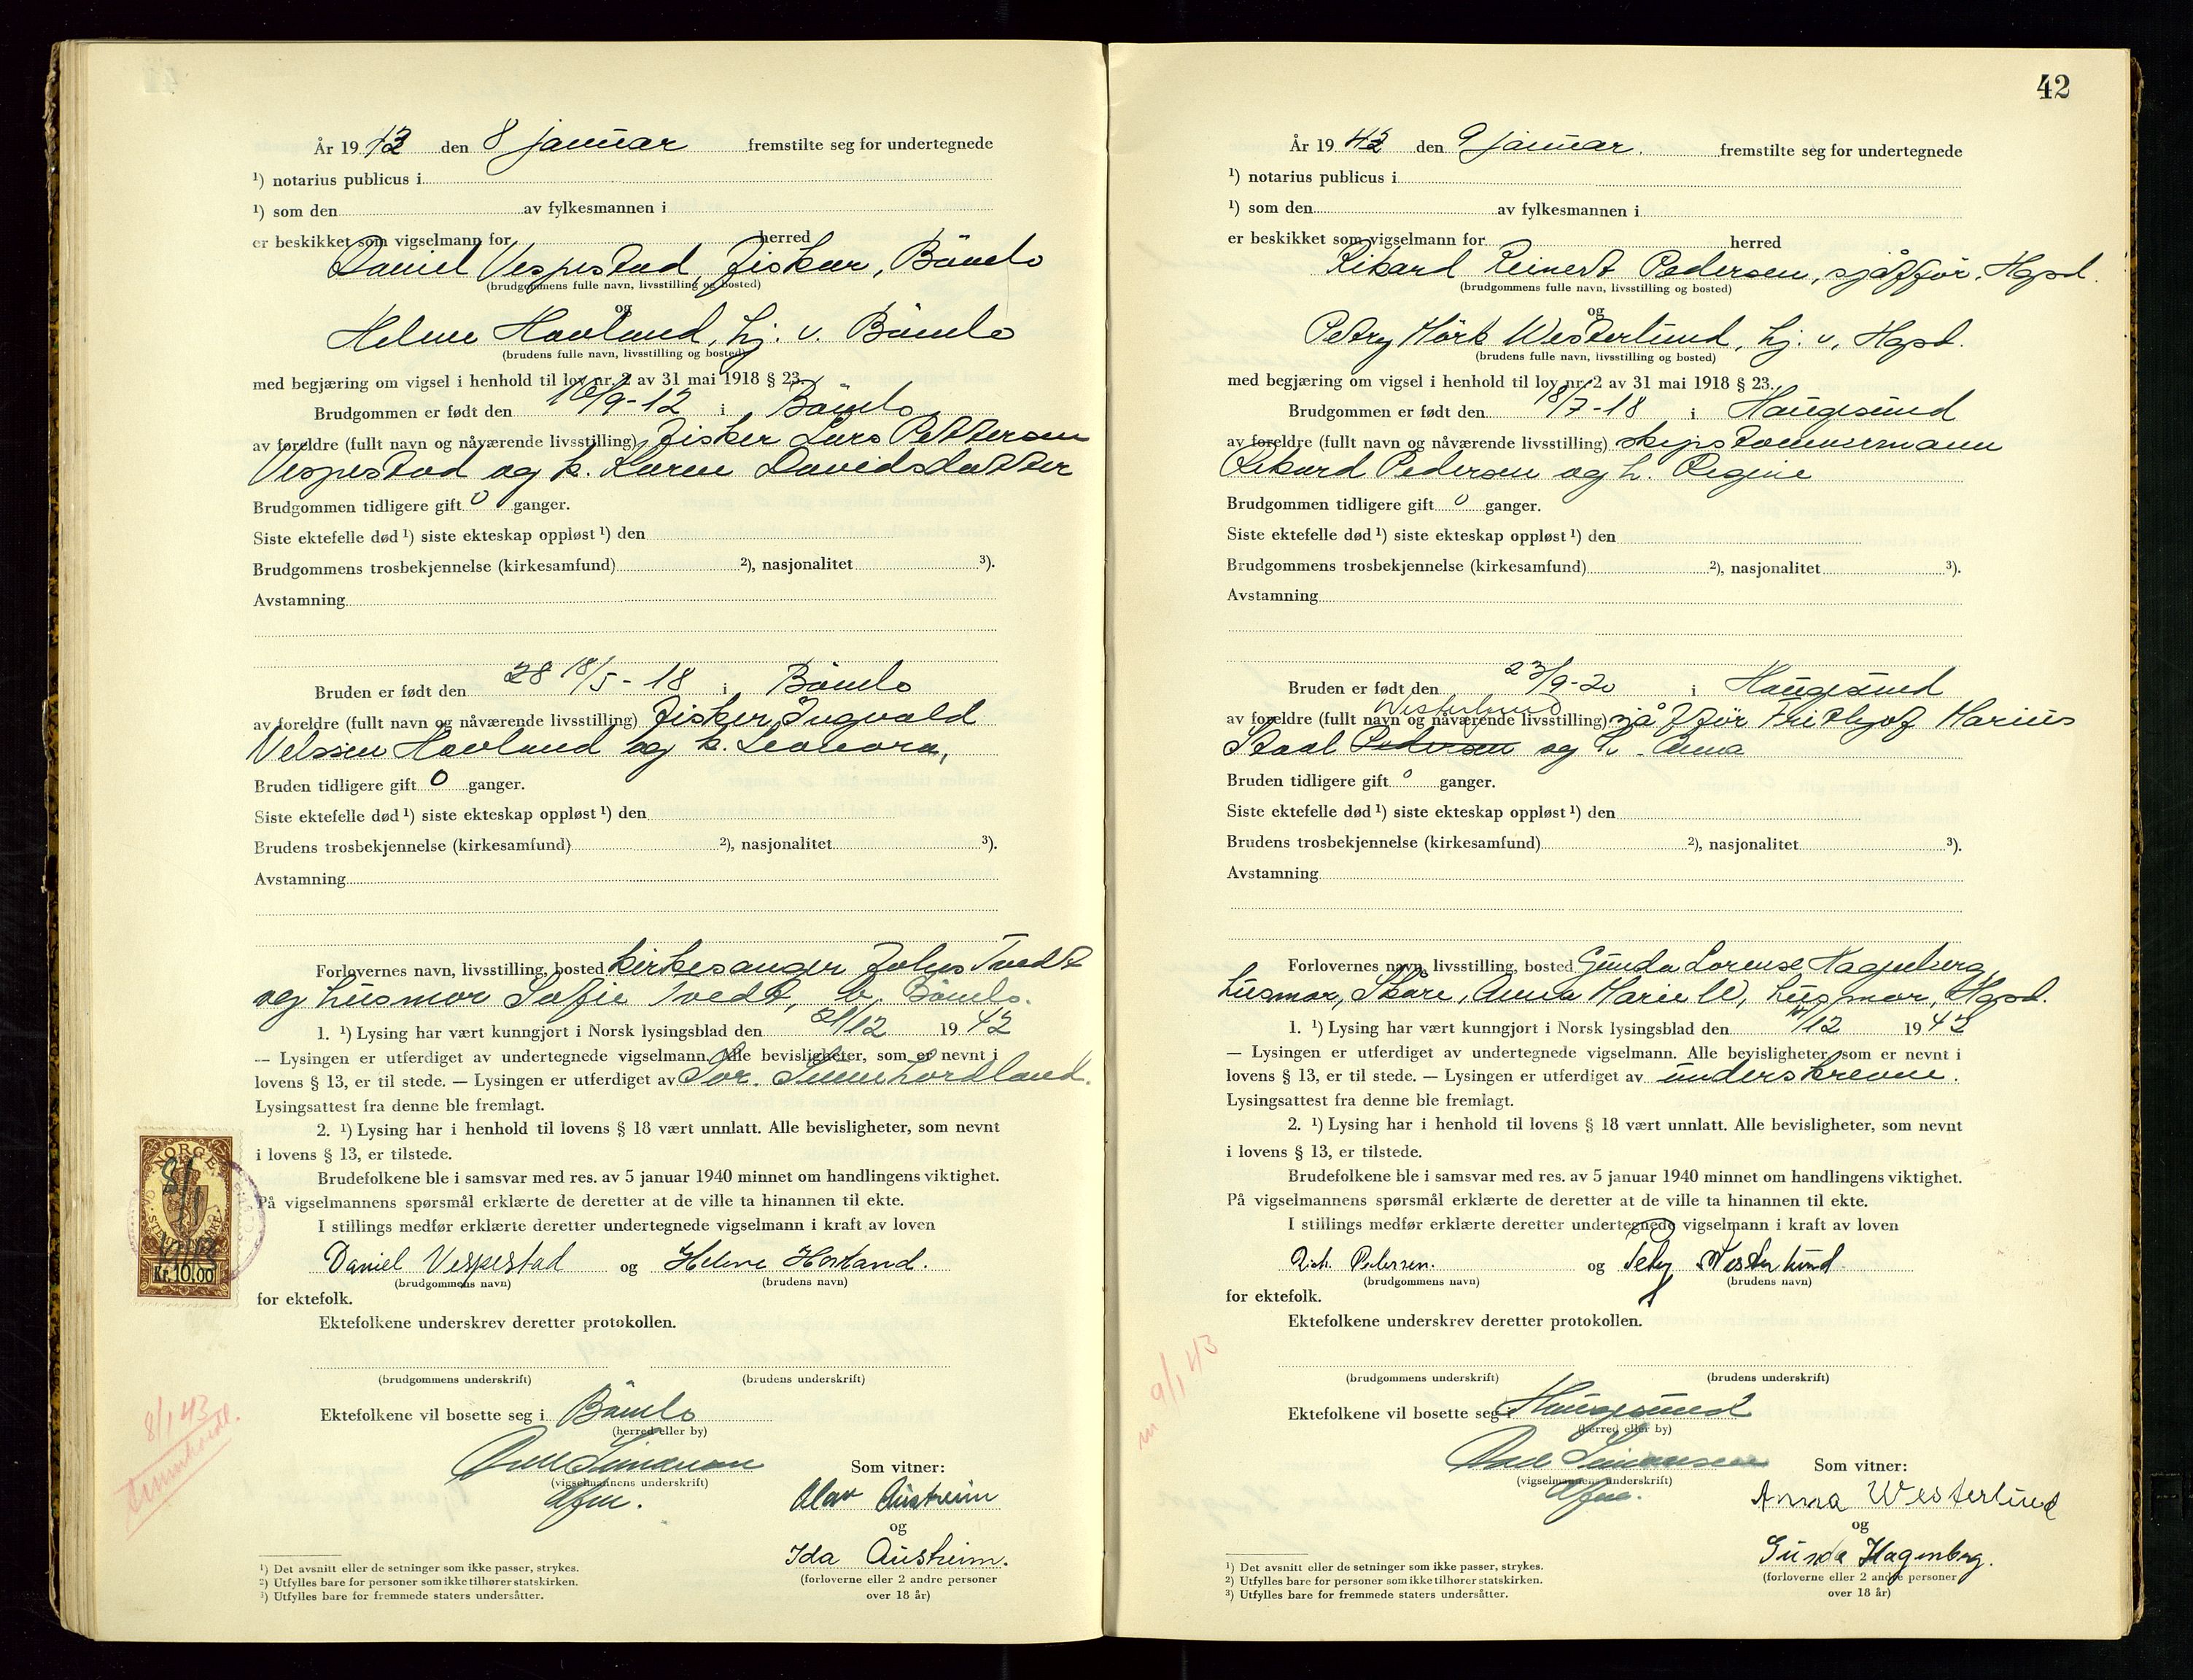 År 19 43 den 8 januar fremstilte seg for undertegnede
¹) notarius publicus i
¹) som den av fylkesmannen i
er beskikket som vigselmann for herred
Daniel Vespestad, fisker, Bömlo
(brudgommens fulle navn, livsstilling og bosted)
og
Helene Havland, hj. v. Bömlo
(brudens fulle navn, livsstilling og bosted)
med begjæring om vigsel i henhold til lov nr. 2 av 31 mai 1918 § 23.
Brudgommen er født den 16/9-12 i Bömlo
av foreldre (fullt navn og nåværende livsstilling) fisker Lars Pettersen
Vespestad og h. Karen Davidsdatter
Brudgommen tidligere gift 0 ganger.
Siste ektefelle død ¹) siste ekteskap oppløst ¹) den
Brudgommens trosbekjennelse (kirkesamfund) ²), nasjonalitet ³).
Avstamning
Bruden er født den 18/5-18 i Bömlo
av foreldre (fullt navn og nåværende livsstilling) fisker Ingvald
Nelssen Havland og h. Leonora,
Bruden tidligere gift 0 ganger.
Siste ektefelle død ¹) siste ekteskap oppløst ¹) den
Brudens trosbekjennelse (kirkesamfund) ²), nasjonalitet ³).
Avstamning
Forlovernes navn, livsstilling, bosted kirkesanger Johs Tvedt
og husmor Sofie Tvedt, b. Bömlo.
1. ¹) Lysing har vært kunngjort i Norsk lysingsblad den 21/12 19 42
— Lysingen er utferdiget av undertegnede vigselmann. Alle bevisligheter, som er nevnt i
lovens § 13, er til stede. — Lysingen er utferdiget av Sor. Sunnhordland.
Lysingsattest fra denne ble fremlagt.
2. ¹) Lysing har i henhold til lovens § 18 vært unnlatt. Alle bevisligheter, som nevnt
i lovens § 13, er tilstede.
Brudefolkene ble i samsvar med res. av 5 januar 1940 minnet om handlingens viktighet.
På vigselmannens spørsmål erklærte de deretter at de ville ta hinannen til ekte.
I stillings medfør erklærte deretter undertegnede vigselmann i kraft av loven
Daniel Vespestad og Helene Havland.
(brudgommens navn) (brudens navn)
for ektefolk.
Ektefolkene underskrev deretter protokollen.
(brudgommens underskrift) (brudens underskrift)
Ektefolkene vil bosette seg i Bömlo
(herred eller by)
Simonsen
(vigselmannens underskrift)
Som vitner:
Olav Austreim
og
Ida Austreim.
(forloverne eller 2 andre personer
over 18 år)
¹) Det avsnitt eller de setninger som ikke passer, strykes.
²) Utfylles bare for personer som ikke tilhører statskirken.
³) Utfylles bare for fremmede staters undersåtter.
NORGE
8/1
Kr. 10.00
8/1 43
42
År 19 43 den 9 januar. fremstilte seg for undertegnede
¹) notarius publicus i
¹) som den av fylkesmannen i
er beskikket som vigselmann for herred
Rikard Reinert Pedersen, sjåffør, Hgsd.
(brudgommens fulle navn, livsstilling og bosted)
og
Petry Mörk Westerlund, hj. v, Hgsd.
(brudens fulle navn, livsstilling og bosted)
med begjæring om vigsel i henhold til lov nr. 2 av 31 mai 1918 § 23.
Brudgommen er født den 18/7-18 i Haugesund
av foreldre (fullt navn og nåværende livsstilling) skipstømmermann
Rikard Pedersen og h. Regine
Brudgommen tidligere gift 0 ganger.
Siste ektefelle død ¹) siste ekteskap oppløst ¹) den
Brudgommens trosbekjennelse (kirkesamfund) ²), nasjonalitet ³).
Avstamning
Bruden er født den 23/9-20 i Haugesund
av foreldre (fullt navn og nåværende livsstilling) sjåffør Frithjof Marius
Westerlund
Staal Pedersen og h. Anna
Bruden tidligere gift 0 ganger.
Siste ektefelle død ¹) siste ekteskap oppløst ¹) den
Brudens trosbekjennelse (kirkesamfund) ²), nasjonalitet ³).
Avstamning
Forlovernes navn, livsstilling, bosted Gunda Lorense Hagenberg,
husmor, Skåre, Anna Marie W, husmor, Hgsd.
1. ¹) Lysing har vært kunngjort i Norsk lysingsblad den /12 19 42
— Lysingen er utferdiget av undertegnede vigselmann. Alle bevisligheter, som er nevnt i
lovens § 13, er til stede. — Lysingen er utferdiget av underskrevne.
Lysingsattest fra denne ble fremlagt.
2. ¹) Lysing har i henhold til lovens § 18 vært unnlatt. Alle bevisligheter, som nevnt
i lovens § 13, er tilstede.
Brudefolkene ble i samsvar med res. av 5 januar 1940 minnet om handlingens viktighet.
På vigselmannens spørsmål erklærte de deretter at de ville ta hinannen til ekte.
I stillings medfør erklærte deretter undertegnede vigselmann i kraft av loven
Rich. Pedersen. og Petry Westerlund
(brudgommens navn) (brudens navn)
for ektefolk.
Ektefolkene underskrev deretter protokollen.
(brudgommens underskrift) (brudens underskrift)
Ektefolkene vil bosette seg i Haugesund
(herred eller by)
Simonsen
(vigselmannens underskrift)
Som vitner:
Anna Westerlund
og
Gunda Hagenberg.
(forloverne eller 2 andre personer
over 18 år)
¹) Det avsnitt eller de setninger som ikke passer, strykes.
²) Utfylles bare for personer som ikke tilhører statskirken.
³) Utfylles bare for fremmede staters undersåtter.
9/1 43